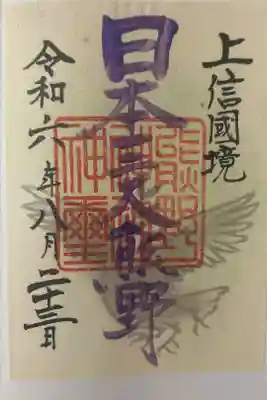 上信國境
日本三大熊野
熊野
神璽
令和六年八月二十三日